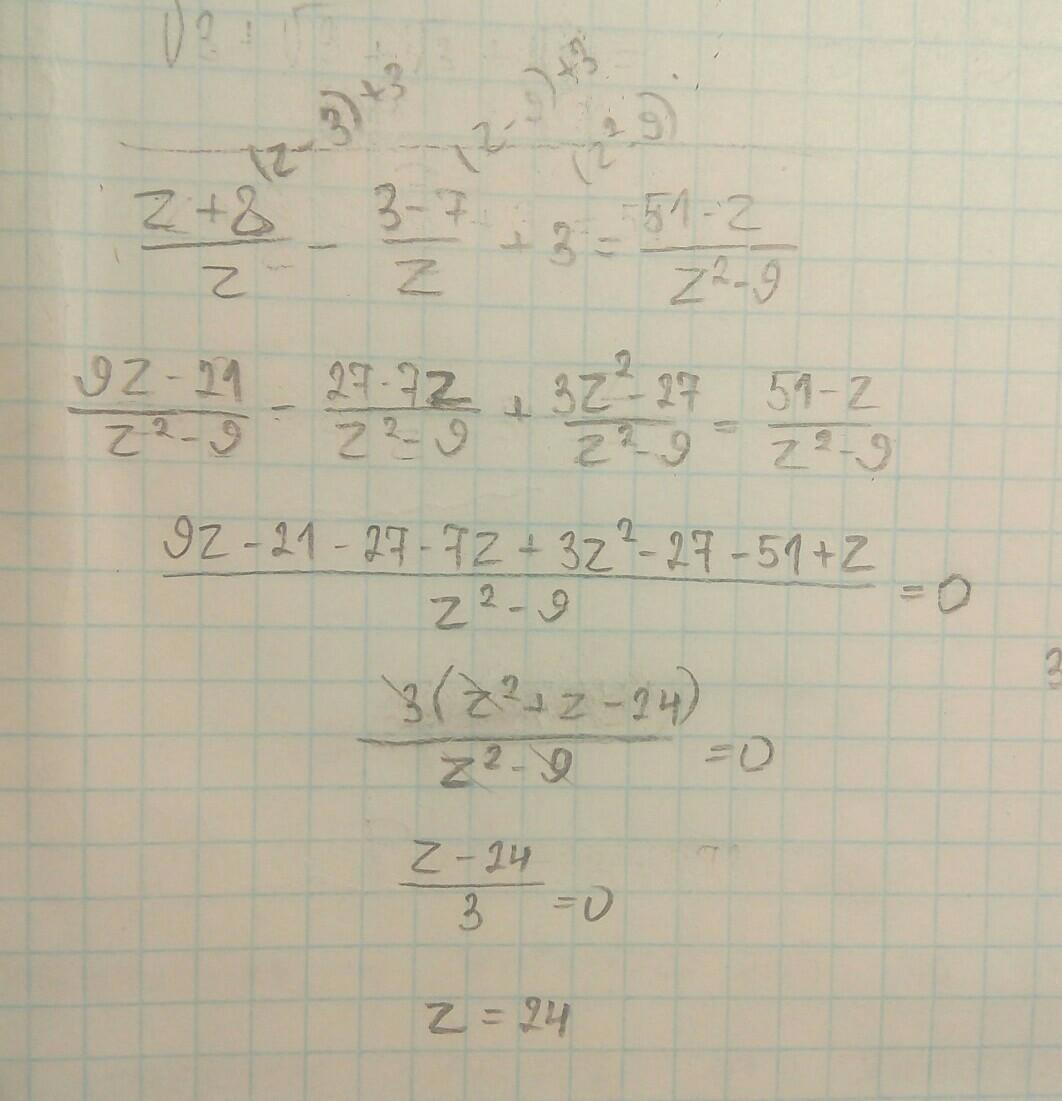 (z-3)×3 (z-9)×3 (z²-9)
z+8/z - 3-7/z + 3 = 51-z/z²-9
9z-21/z²-9 - 27-7z/z²-9 + 3z²-27/z²-9 = 51-z/z²-9
9z-21-27-7z+3z²-27-51+z/z²-9 = 0
3(z²+z-24)/z²-9 = 0
z-24/3 = 0
z = 24